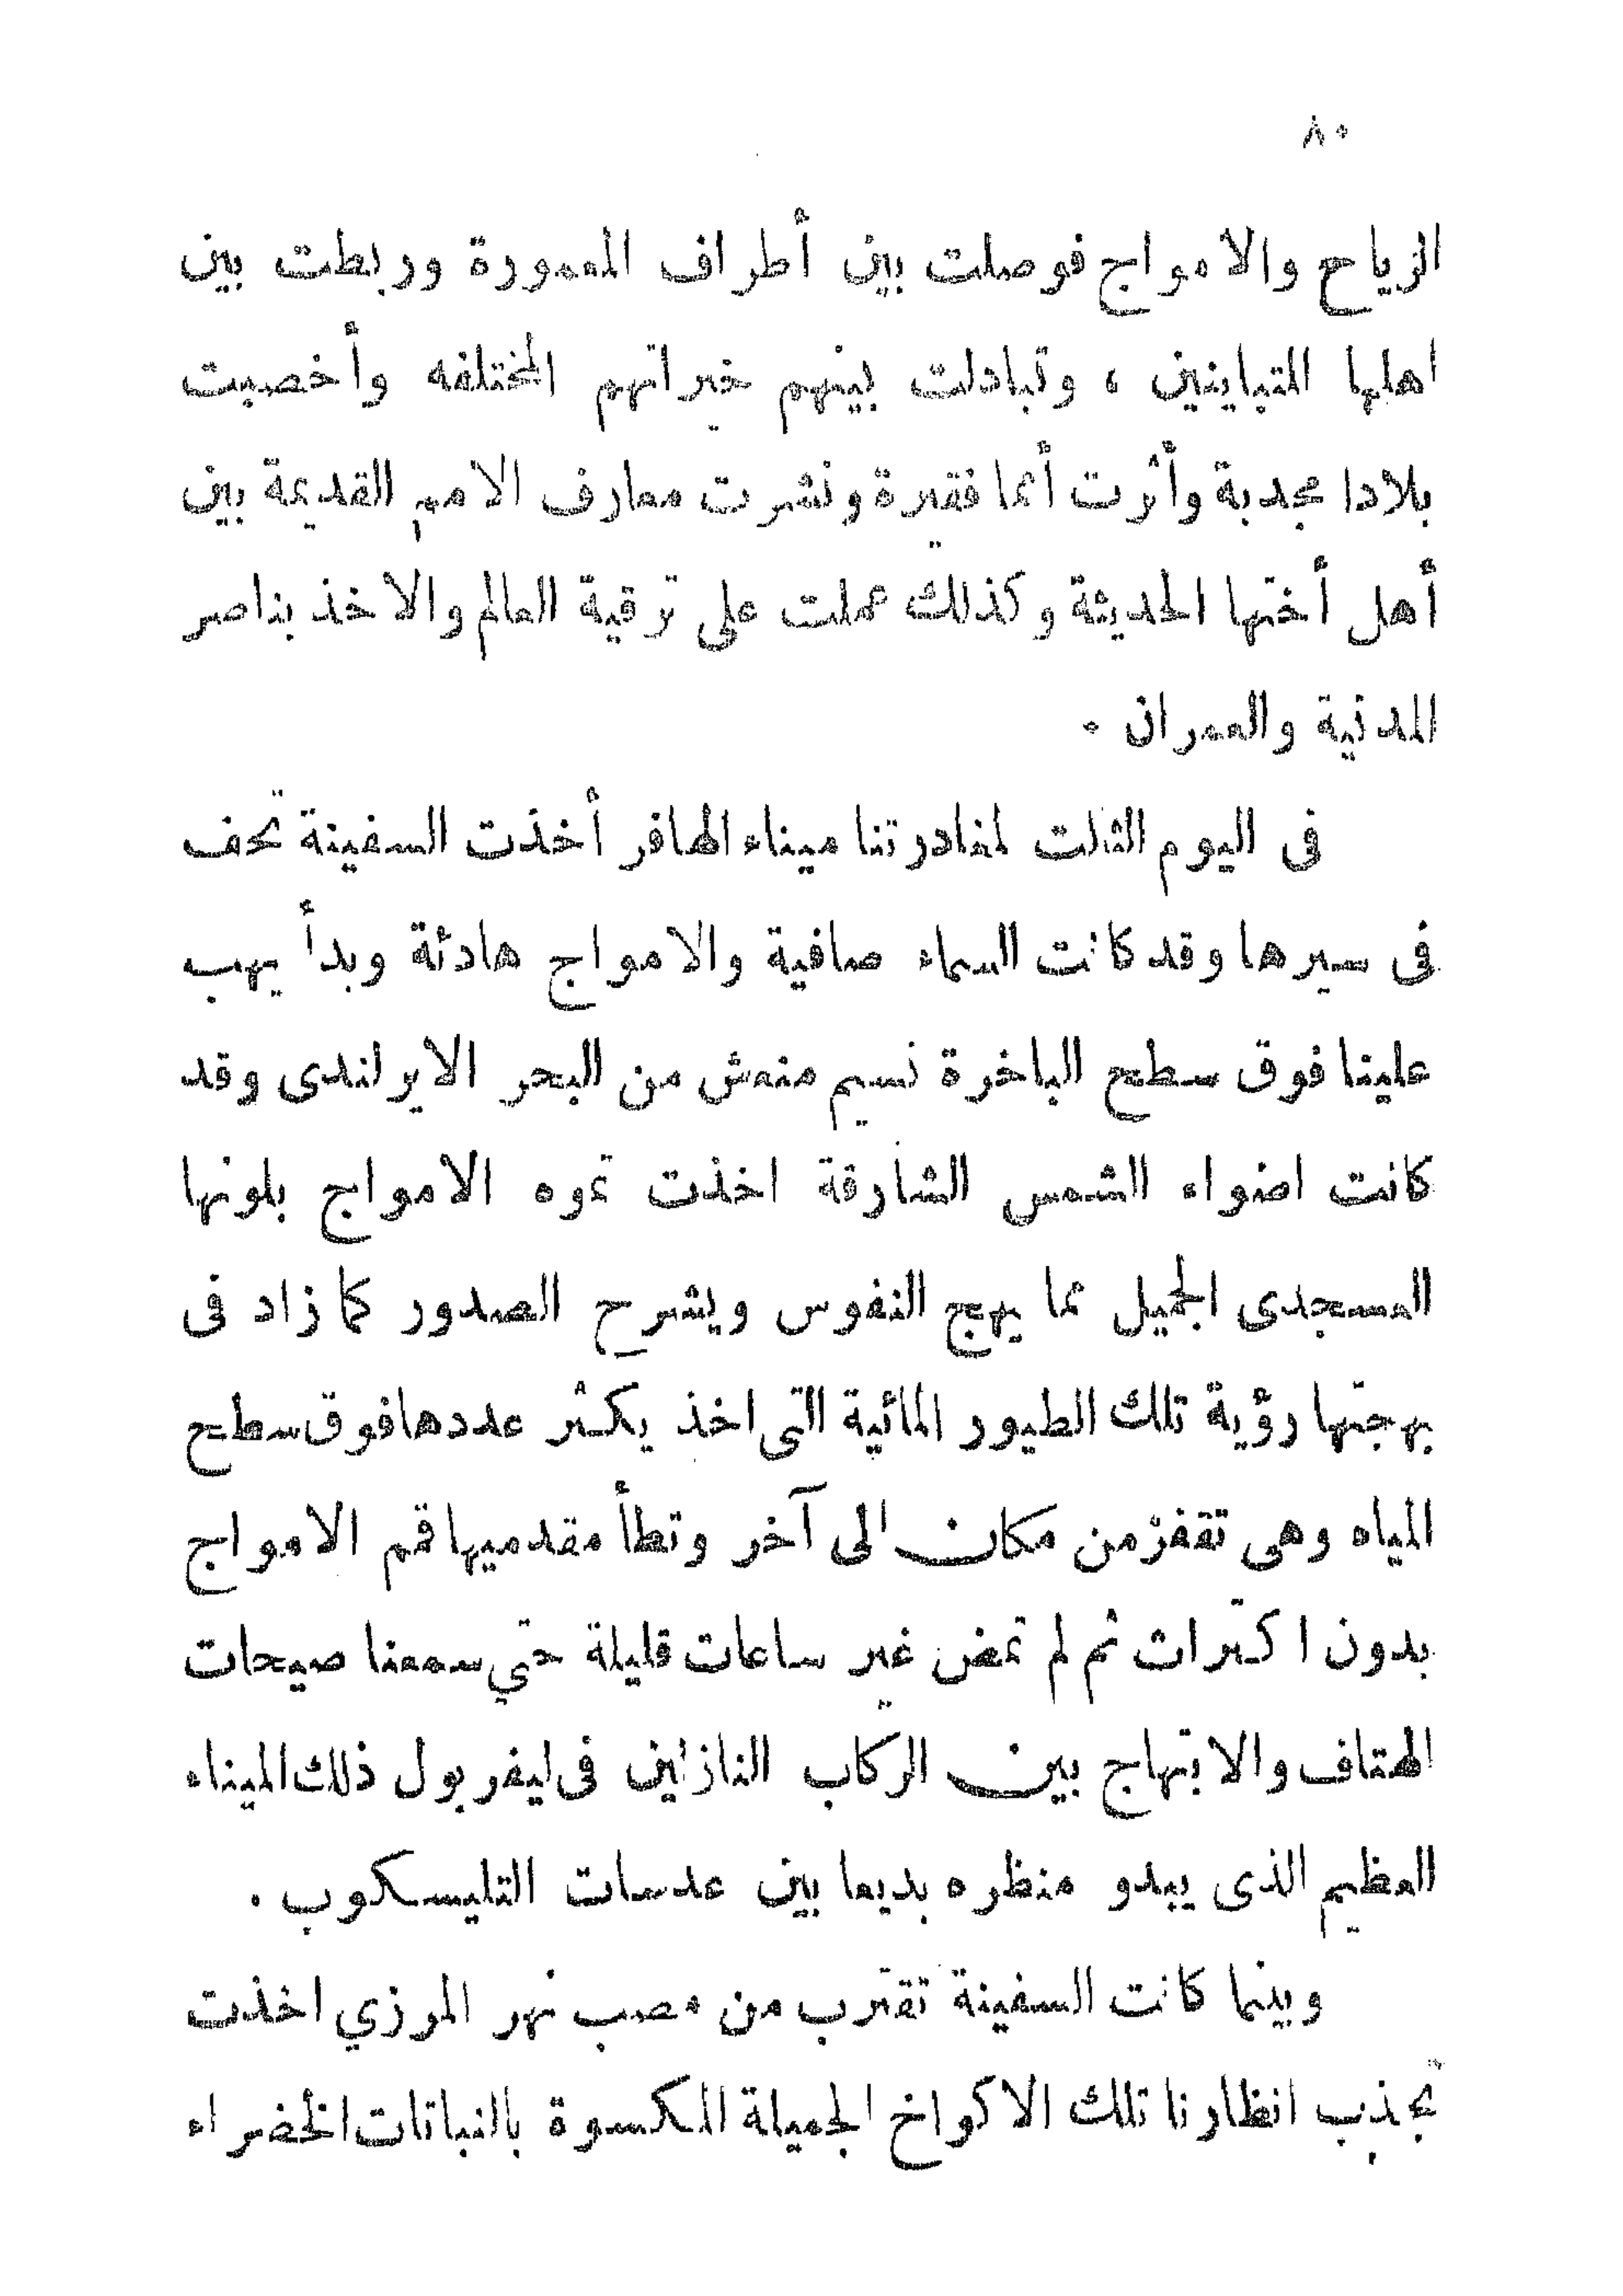 ٨٠
الرياح والامواج فوصلت بين أطراف المعمورة وربطت بين
اهلها المتباينين ، وتبادلت بينهم خيراتهم المختلفه وأخصبت
بلادا مجدبة وأثرت أمما فقيرة ونشرت معارف الامم القديمة بين
أهل أختها الحديثة وكذلك عملت على ترقية العالم والاخذ بناصر
المدنية والعمران .
فى اليوم الثالت لمغادرتنا ميناء الهافر أخذت السفينة تخف
فى سيرها وقد كانت السماء صافية والامواج هادئة وبدأ يهب
علينا فوق سطح الباخرة نسيم منعش من البحر الايرلندى وقد
كانت اضواء الشمس الشارقة اخذت تموه الامواج بلونها
العسجدى الجميل مما يهج النفوس ويشرح الصدور كما زاد فى
بهجتها رؤية تلك الطيور المائية التى اخذ يكثر عددها فوق سطح
المياه وهى تقفز من مكان الى آخر وتطأ مقدميها قمم الامواج
بدون اكتراث ثم لم تمض غير ساعات قليلة حتي سمعنا صيحات
الهتاف والابتهاج بين الركاب النازلين فى ليفربول ذلك الميناء
العظيم الذى يبدو منظره بديعا بين عدسات التليسكوب .
وبينما كانت السفينة تقترب من مصب نهر المرزي اخذت
تجذب انظارنا تلك الاكواخ الجميلة المكسوة بالنباتات الخضراء